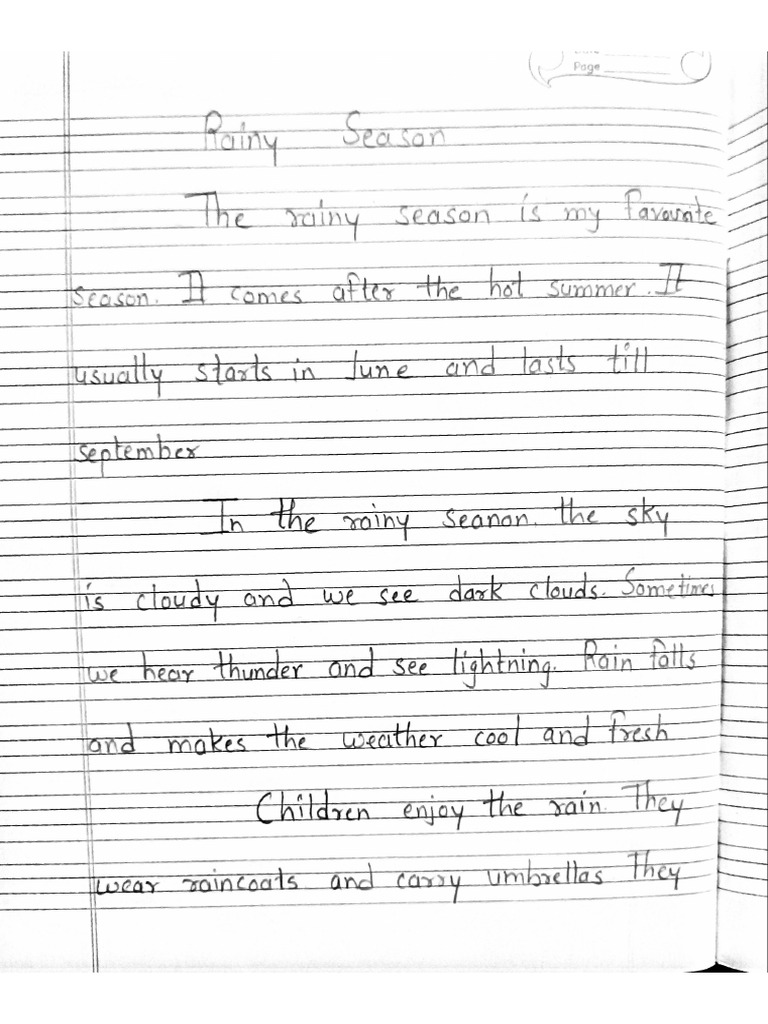 Page
Rainy Season
The rainy season is my favourite
season. It comes after the hot summer. It
usually starts in June and lasts till
september
In the rainy seanon. the sky
is cloudy and we see dark clouds. Sometimes
we hear thunder and see lightning. Rain falls
and makes the weather cool and fresh
Children enjoy the rain. They
wear raincoats and carry umbrellas They